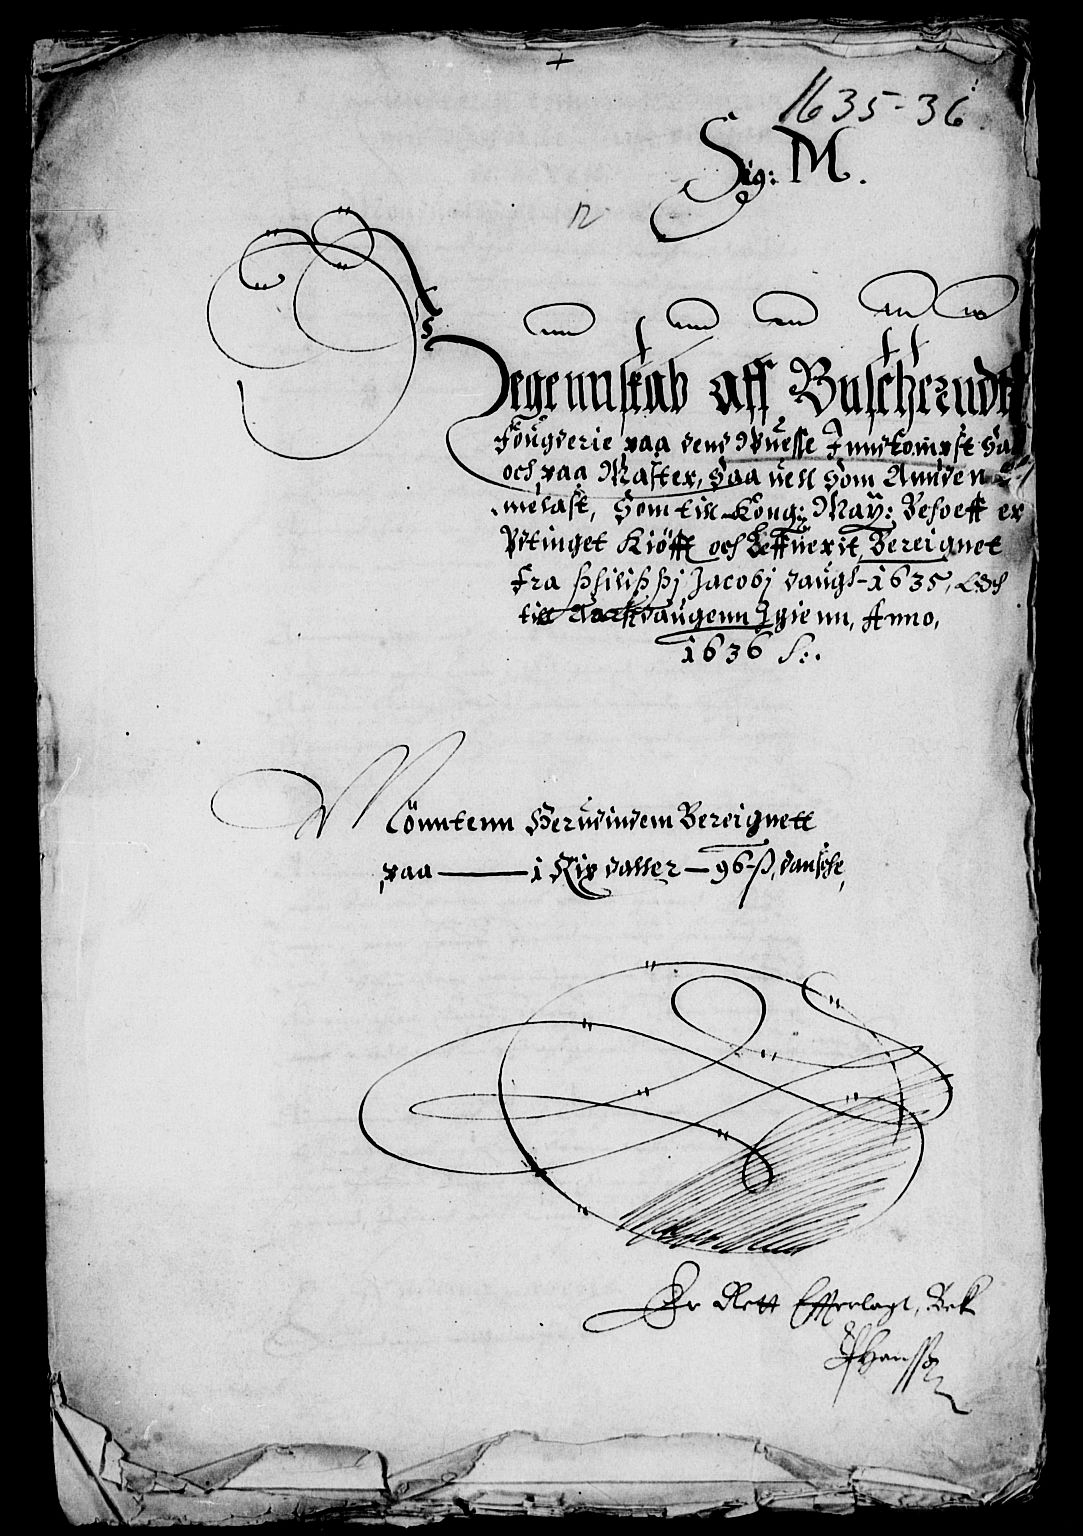 1635-36
Sig: M.
12
Regennskab aff Buscherudtz
fougderie paa dend Wuesse Inndkompst
och paa Master, Saa uell som Anden
melast, Som till Kong: May: Behoeff er
Vdtinget Kiöfft och Beffuerit, Bereignet
fra Philippj Jacobj daugh 1635, Och
till Aarssdaugenn Igienn, Anno,
1636 S:.
Mönntenn Herudindem Bereignett
paa — 1 Rix daller — 96 ß, dansche,
Er Rett Efferlagt, Bek
Hanssøn